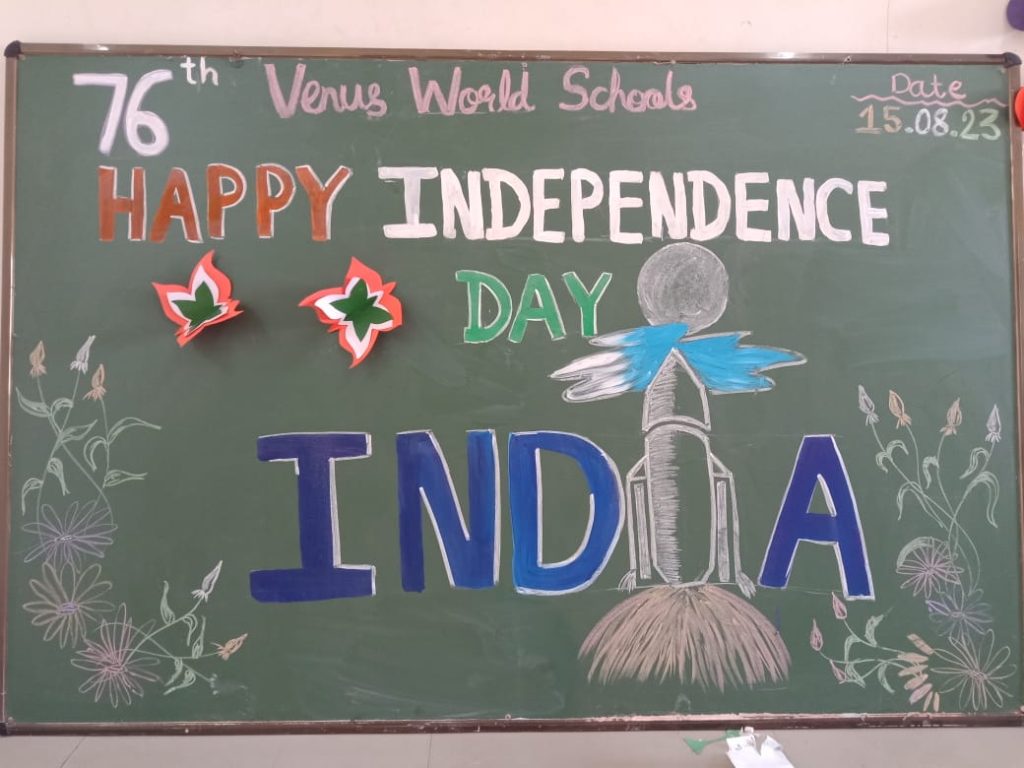 76th Venus World Schools
Date
15.08.23
HAPPY INDEPENDENCE
DAY
INDIA